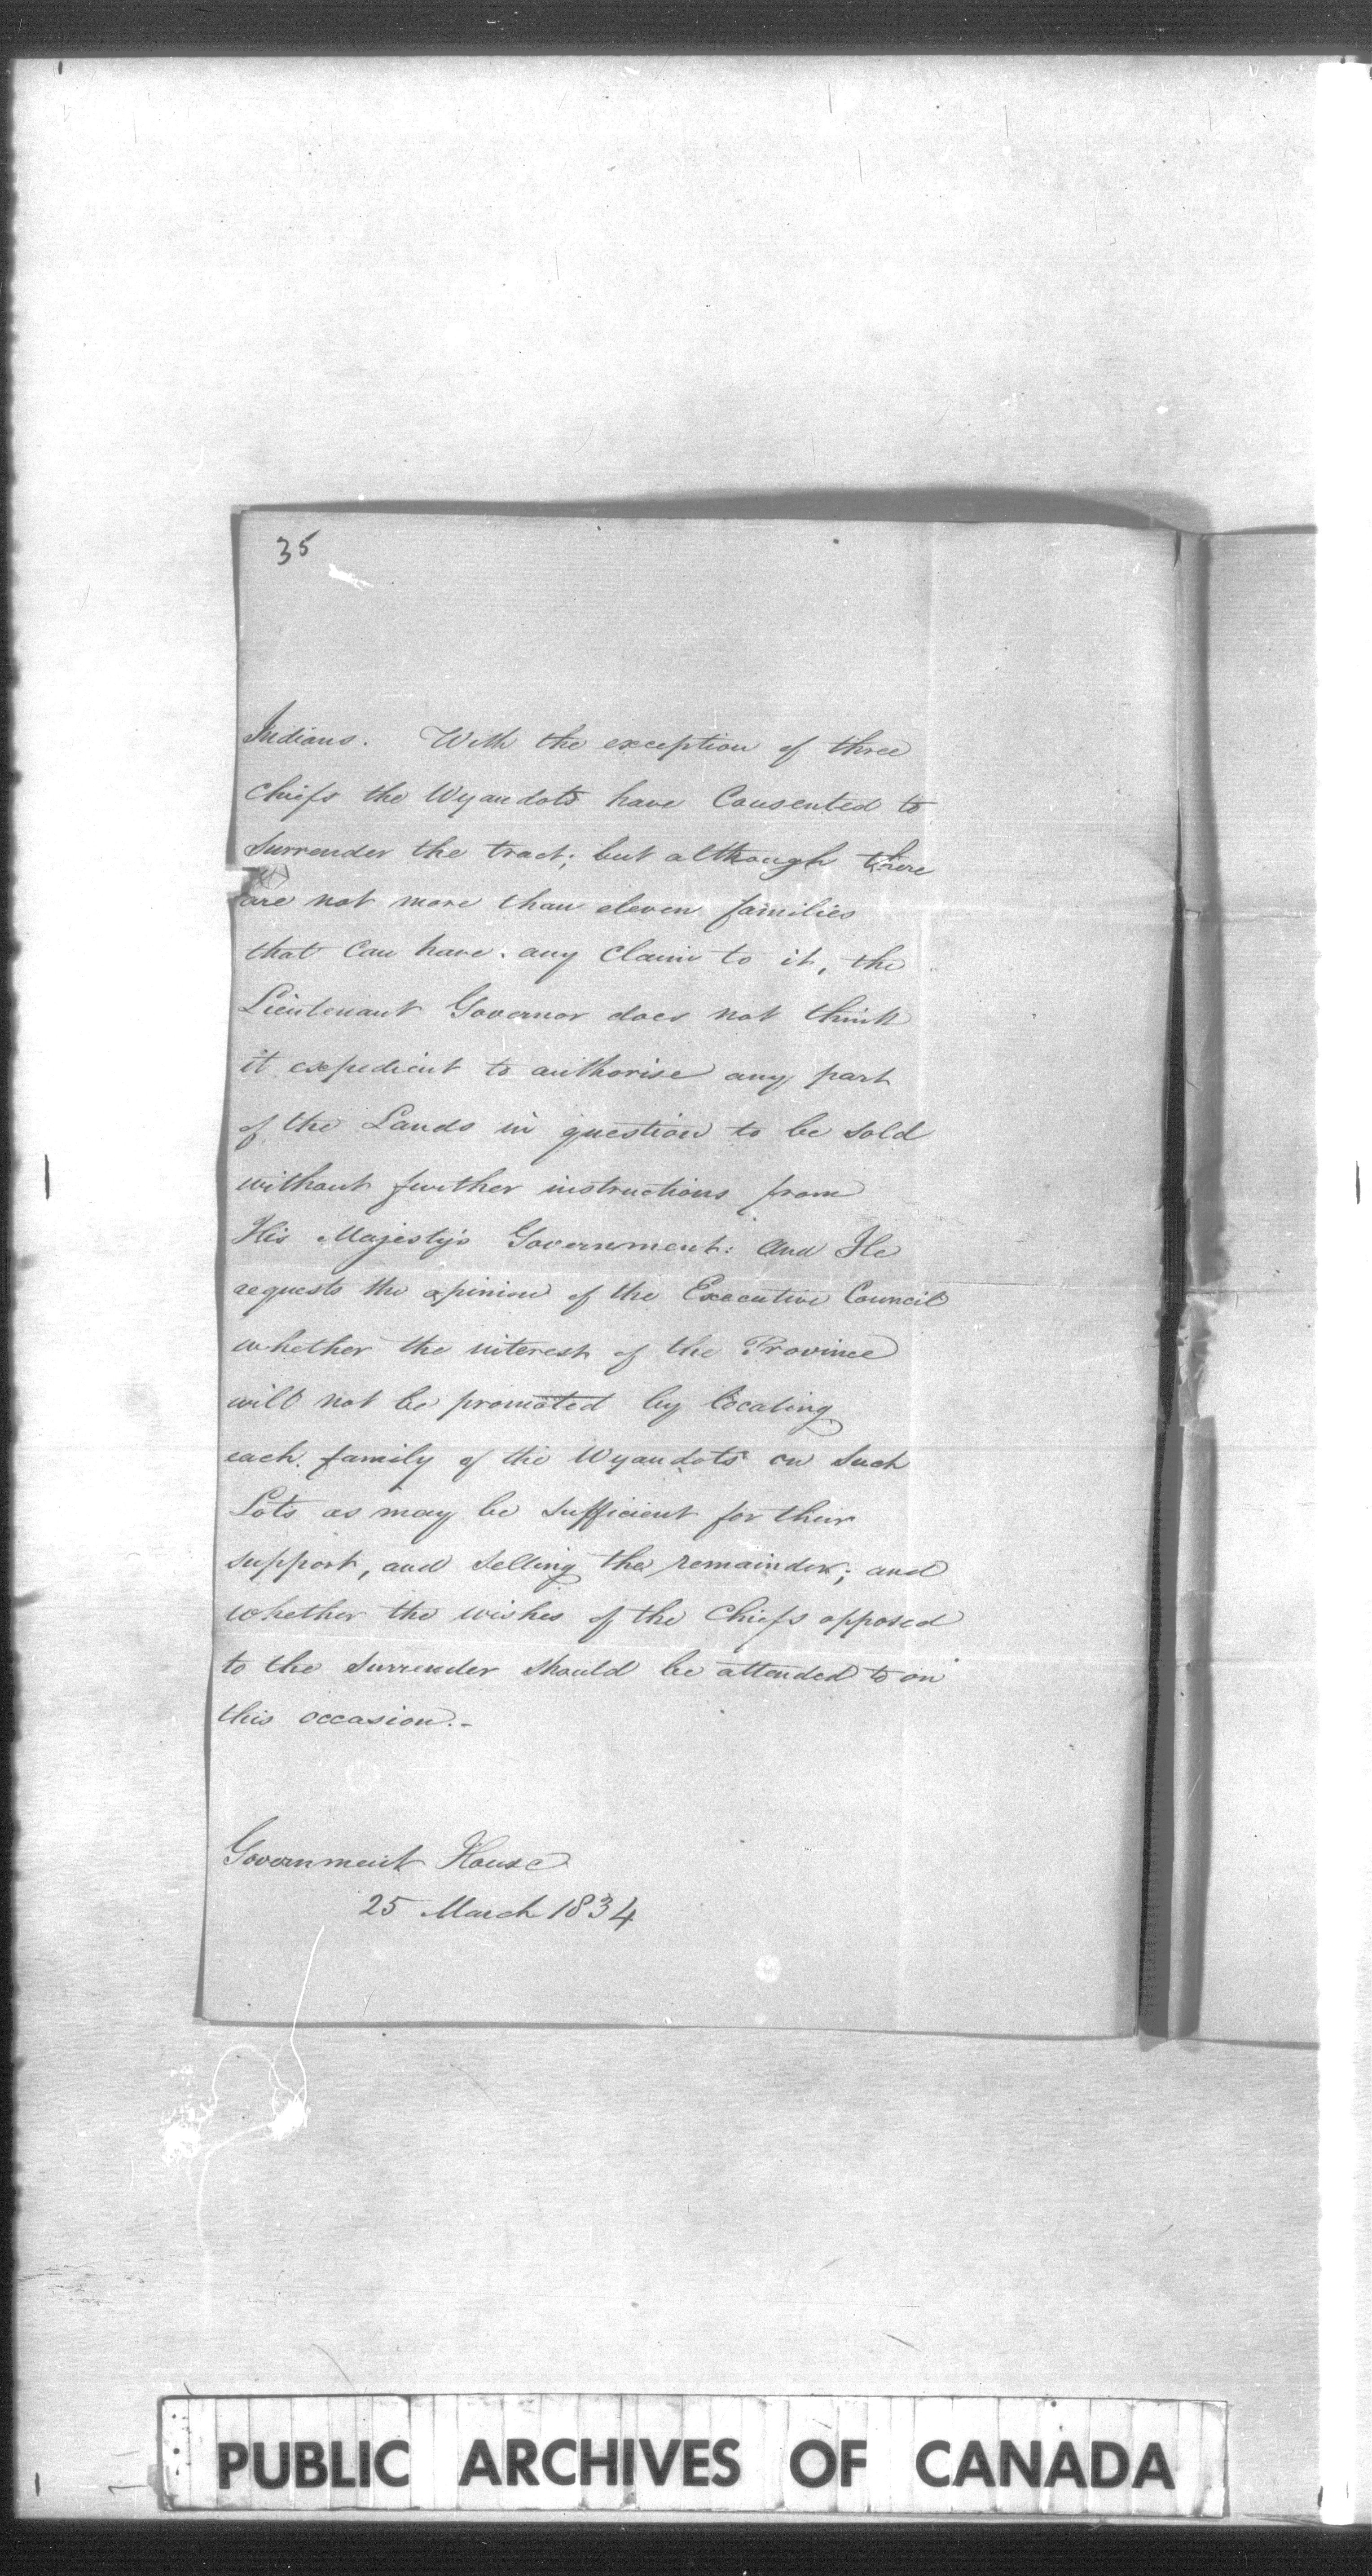 35
Indians. With the exception of three
Chiefs the Wyandots have Consented to
Surrender the tract; but although there
are not more than eleven families
that Can have any Claim to it, the
Lieutenant Governor does not think
it expedient to authorise any part
of the Lands in question to be sold
without further instructions from
His Majesty's Government: And He
requests the opinion of the Executive Council
whether the interest of the Province
will not be promoted by locating
each family of the Wyandots on Such
Lots as may be Sufficient for their
support, and Selling the remainder; and
whether the wishes of the Chiefs opposed
to the Surrender should be attended to on
this occasion.-
Government House
25 March 1834
PUBLIC ARCHIVES OF CANADA